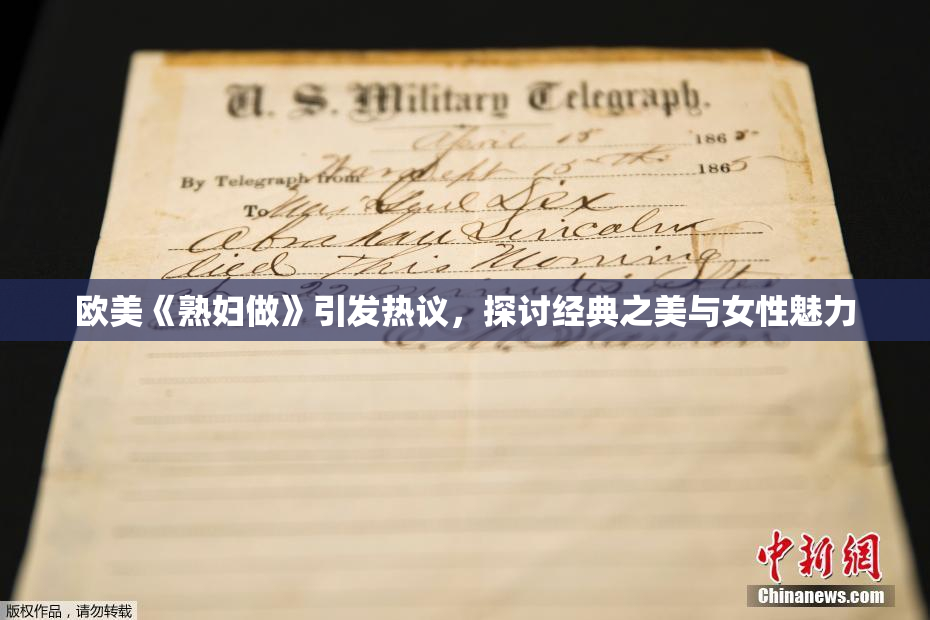 U. S. Military Telegraph.
April 15 1865
By Telegraph from War Dept 15th 1865
To Maj Genl Dix
Abraham Lincoln
died This Morning
22 minutes after
欧美《熟妇做》引发热议，探讨经典之美与女性魅力
E. M. Stanton
中新網
Chinanews.com
版权作品，请勿转载